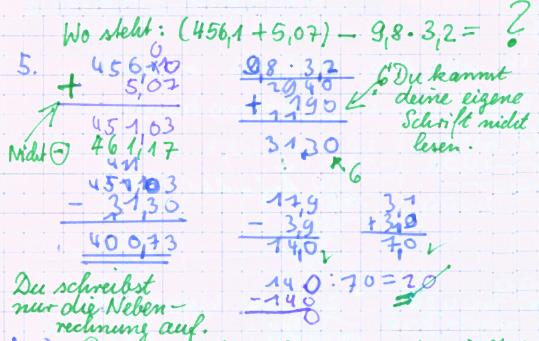 Wo steht: (456,1 + 5,07) – 9,8 · 3,2 = ?
5.
456,10
+ 5,07
451,03
461,17
Nicht ⊖
- 31,30
400,73
Du schreibst
nur die Neben-
rechnung auf.
9,8 · 3,2
2940
+ 190
31,30
6
6 Du kannst
deine eigene
Schrift nicht
lesen.
17,9
- 3,9
14,0 ✓
3,1
+ 3,9
7,0 ✓
140 : 70 = 20
-140
0